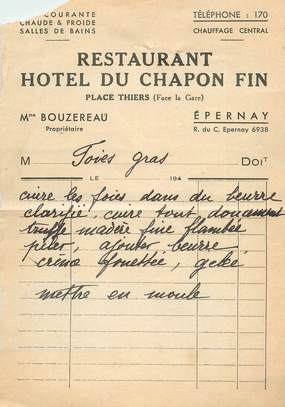 COURANTE
CHAUDE & FROIDE
SALLES DE BAINS
TÉLÉPHONE : 170
CHAUFFAGE CENTRAL
RESTAURANT
HOTEL DU CHAPON FIN
PLACE THIERS (Face la Gare)
Mme BOUZEREAU
Propriétaire
ÉPERNAY
R. du C. Epernay 6938
M Foies gras DOIT
LE 194
cuire les foies dans du beurre
clarifié, cuire tout doucement
truffe madère fine flambée
piler, ajouter beurre
crème fouettée, gelée
mettre en moule